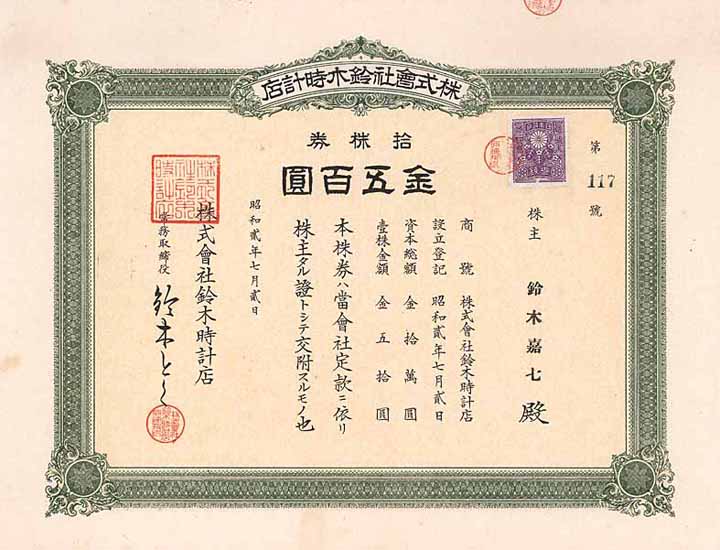 株式會社鈴木時計店
拾株券
金五百圓
第117號
株主 鈴木嘉七殿
商號 株式會社鈴木時計店
設立登記 昭和貳年七月貳日
資本總額 金拾萬圓
壹株金額 金五拾圓
本株券ハ當會社定款ニ依リ
株主タル證トシテ交附スルモノ也
昭和貳年七月貳日
株式會社鈴木時計店
常務取締役 鈴木